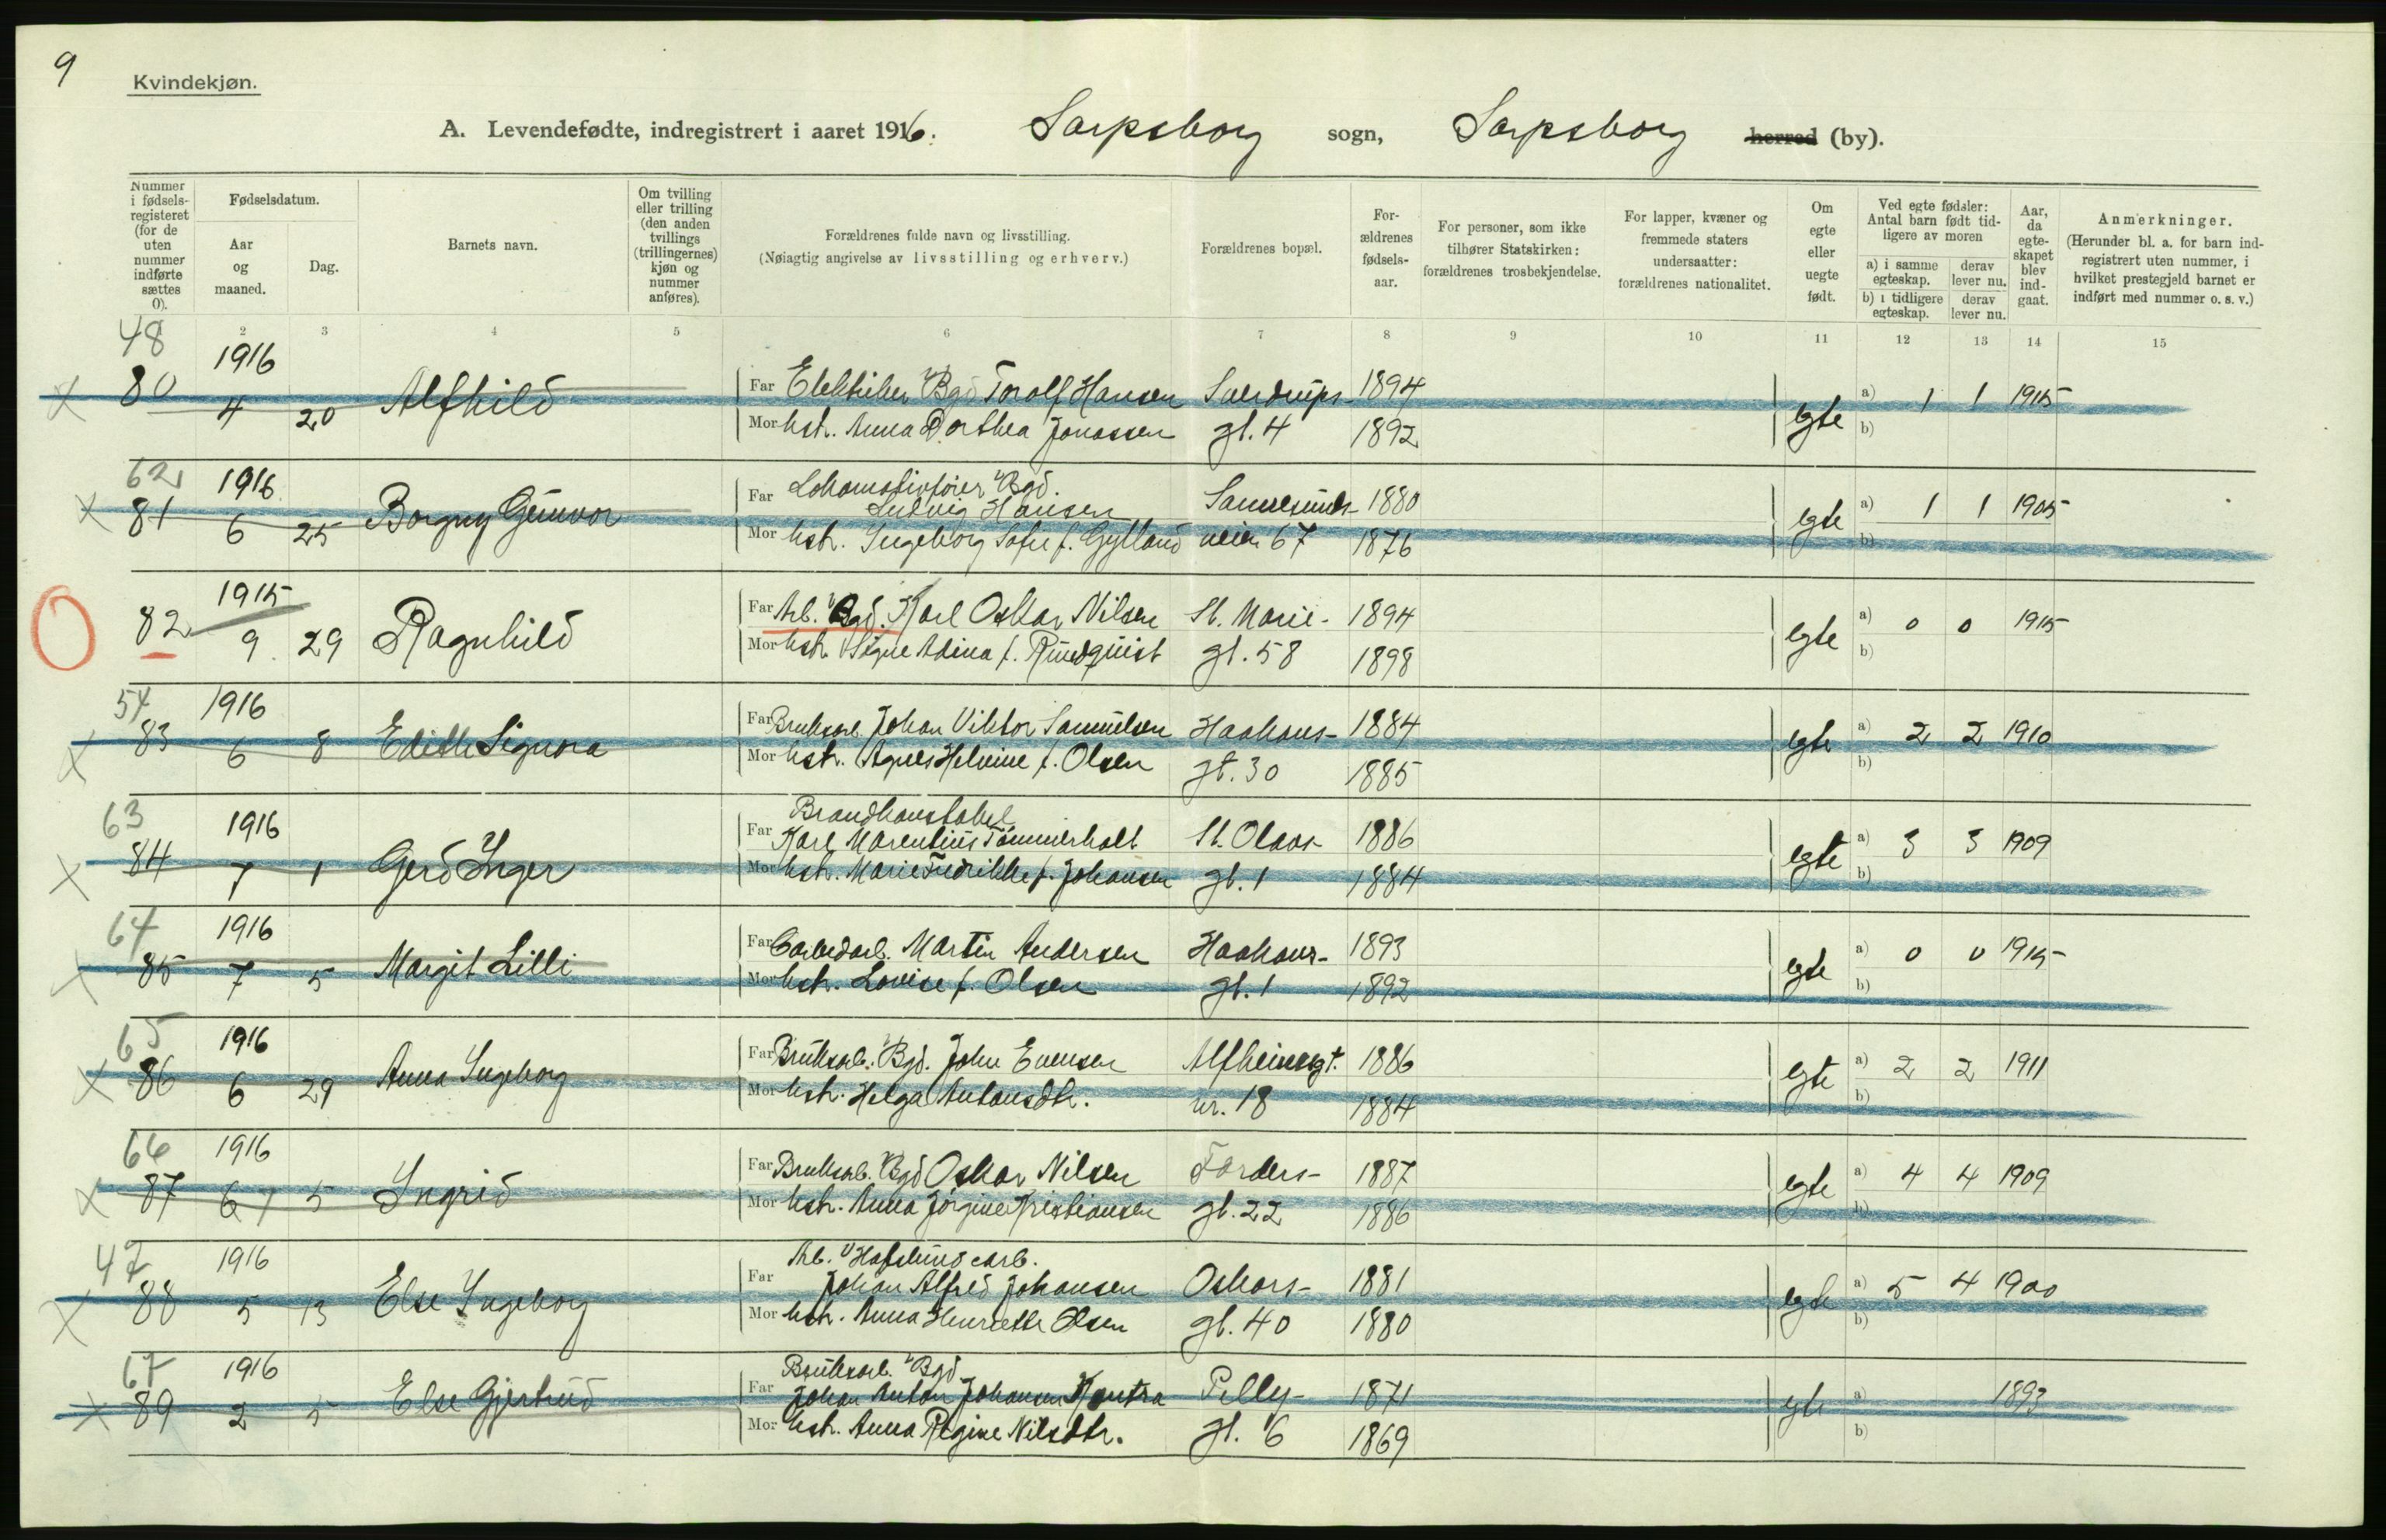 9
Kvindekjøn.
A. Levendefødte, indregistrert i aaret 1916. Sarpsborg sogn, Sarpsborg herred (by).
Nummer i fødsels-registeret (for de uten nummer indførte sættes 0).
Fødselsdatum.
Aar og maaned.
Dag.
Barnets navn.
Om tvilling eller trilling (den anden tvillings (trillingernes) kjøn og nummer anføres).
Forældrenes fulde navn og livsstilling.
(Nøiagtig angivelse av livsstilling og erhverv.)
Forældrenes bopæl.
For-ældrenes fødsels-aar.
For personer, som ikke tilhører Statskirken: forældrenes trosbekjendelse.
For lapper, kvæner og fremmede staters undersaatter: forældrenes nationalitet.
Om egte eller uegte født.
Ved egte fødsler: Antal barn født tid-ligere av moren
a) i samme egteskap.
derav lever nu.
b) i tidligere egteskap.
derav lever nu.
Aar, da egte-skapet blev ind-gaat.
Anmerkninger.
(Herunder bl. a. for barn ind-registrert uten nummer, i hvilket prestegjeld barnet er indført med nummer o. s. v.)
2 3 4 5 6 7 8 9 10 11 12 13 14 15
48
1916
80 4 20 Alfhild Far Elektriker v/Bgd Torolf Hansen Sverdrups- 1894 egte a) 1 1 1915
Mor hstr. Anna Dorthea Jonassen gt. 4 1892 b)
62
1916 Lokomotivfører v/Bgd.
81 6 25 Borgny Gunvor Far Ludvig Hansen Sannesunds- 1880 egte a) 1 1 1905
Mor hstr. Ingeborg Sofie f. Gylland veien 67 1876 b)
1915
82 9 29 Ragnhild Far Arb. v/Bgd. Karl Oskar Nilsen St. Marie- 1894 egte a) 0 0 1915
Mor hstr. Signe Adina f. Rundquist gt. 58 1898 b)
54
1916
83 6 8 Edith Signora Far Bruksarb. Johan Viktor Samuelsen Haakons- 1884 egte a) 2 2 1910
Mor hstr. Agnes Helvine f. Olsen gt. 30 1885 b)
63
1916 Brandkonstabel
84 7 1 Gerd Inger Far Karl Marentius Tømmerholt St. Olavs- 1886 egte a) 3 3 1909
Mor hstr. Marie Fredrikke f. Johansen gt. 1 1884 b)
64
1916
85 7 5 Margit Lilli Far Carbidarb. Martin Andersen Haakons- 1893 egte a) 0 0 1915
Mor hstr. Lovise f. Olsen gt. 1 1892 b)
65
1916
86 6 29 Anna Ingeborg Far Bruksarb. v/Bgd. John Evensen Alfheimsgt. 1886 egte a) 2 2 1911
Mor hstr. Helga Antonsdtr. nr. 18 1884 b)
66
1916
87 6 7 5 Ingrid Far Bruksarb. v/Bgd Oskar Nilsen Torders- 1887 egte a) 4 4 1909
Mor hstr. Anna Jørgine Kristiansen gt. 22 1886 b)
47
1916 Arb. v/Hafslund carb.
88 5 13 Else Ingeborg Far Johan Alfred Johansen Oskars- 1881 egte a) 5 4 1900
Mor hstr. Anna Henriette Olsen gt. 40 1880 b)
67
1916 Bruksarb. v/Bgd.
89 2 5 Else Gjertrud Far Johan Anton Johansen Kontra Pelly- 1871 egte a) 1893
Mor hstr. Anna Regine Nilsdtr. gt. 6 1869 b)